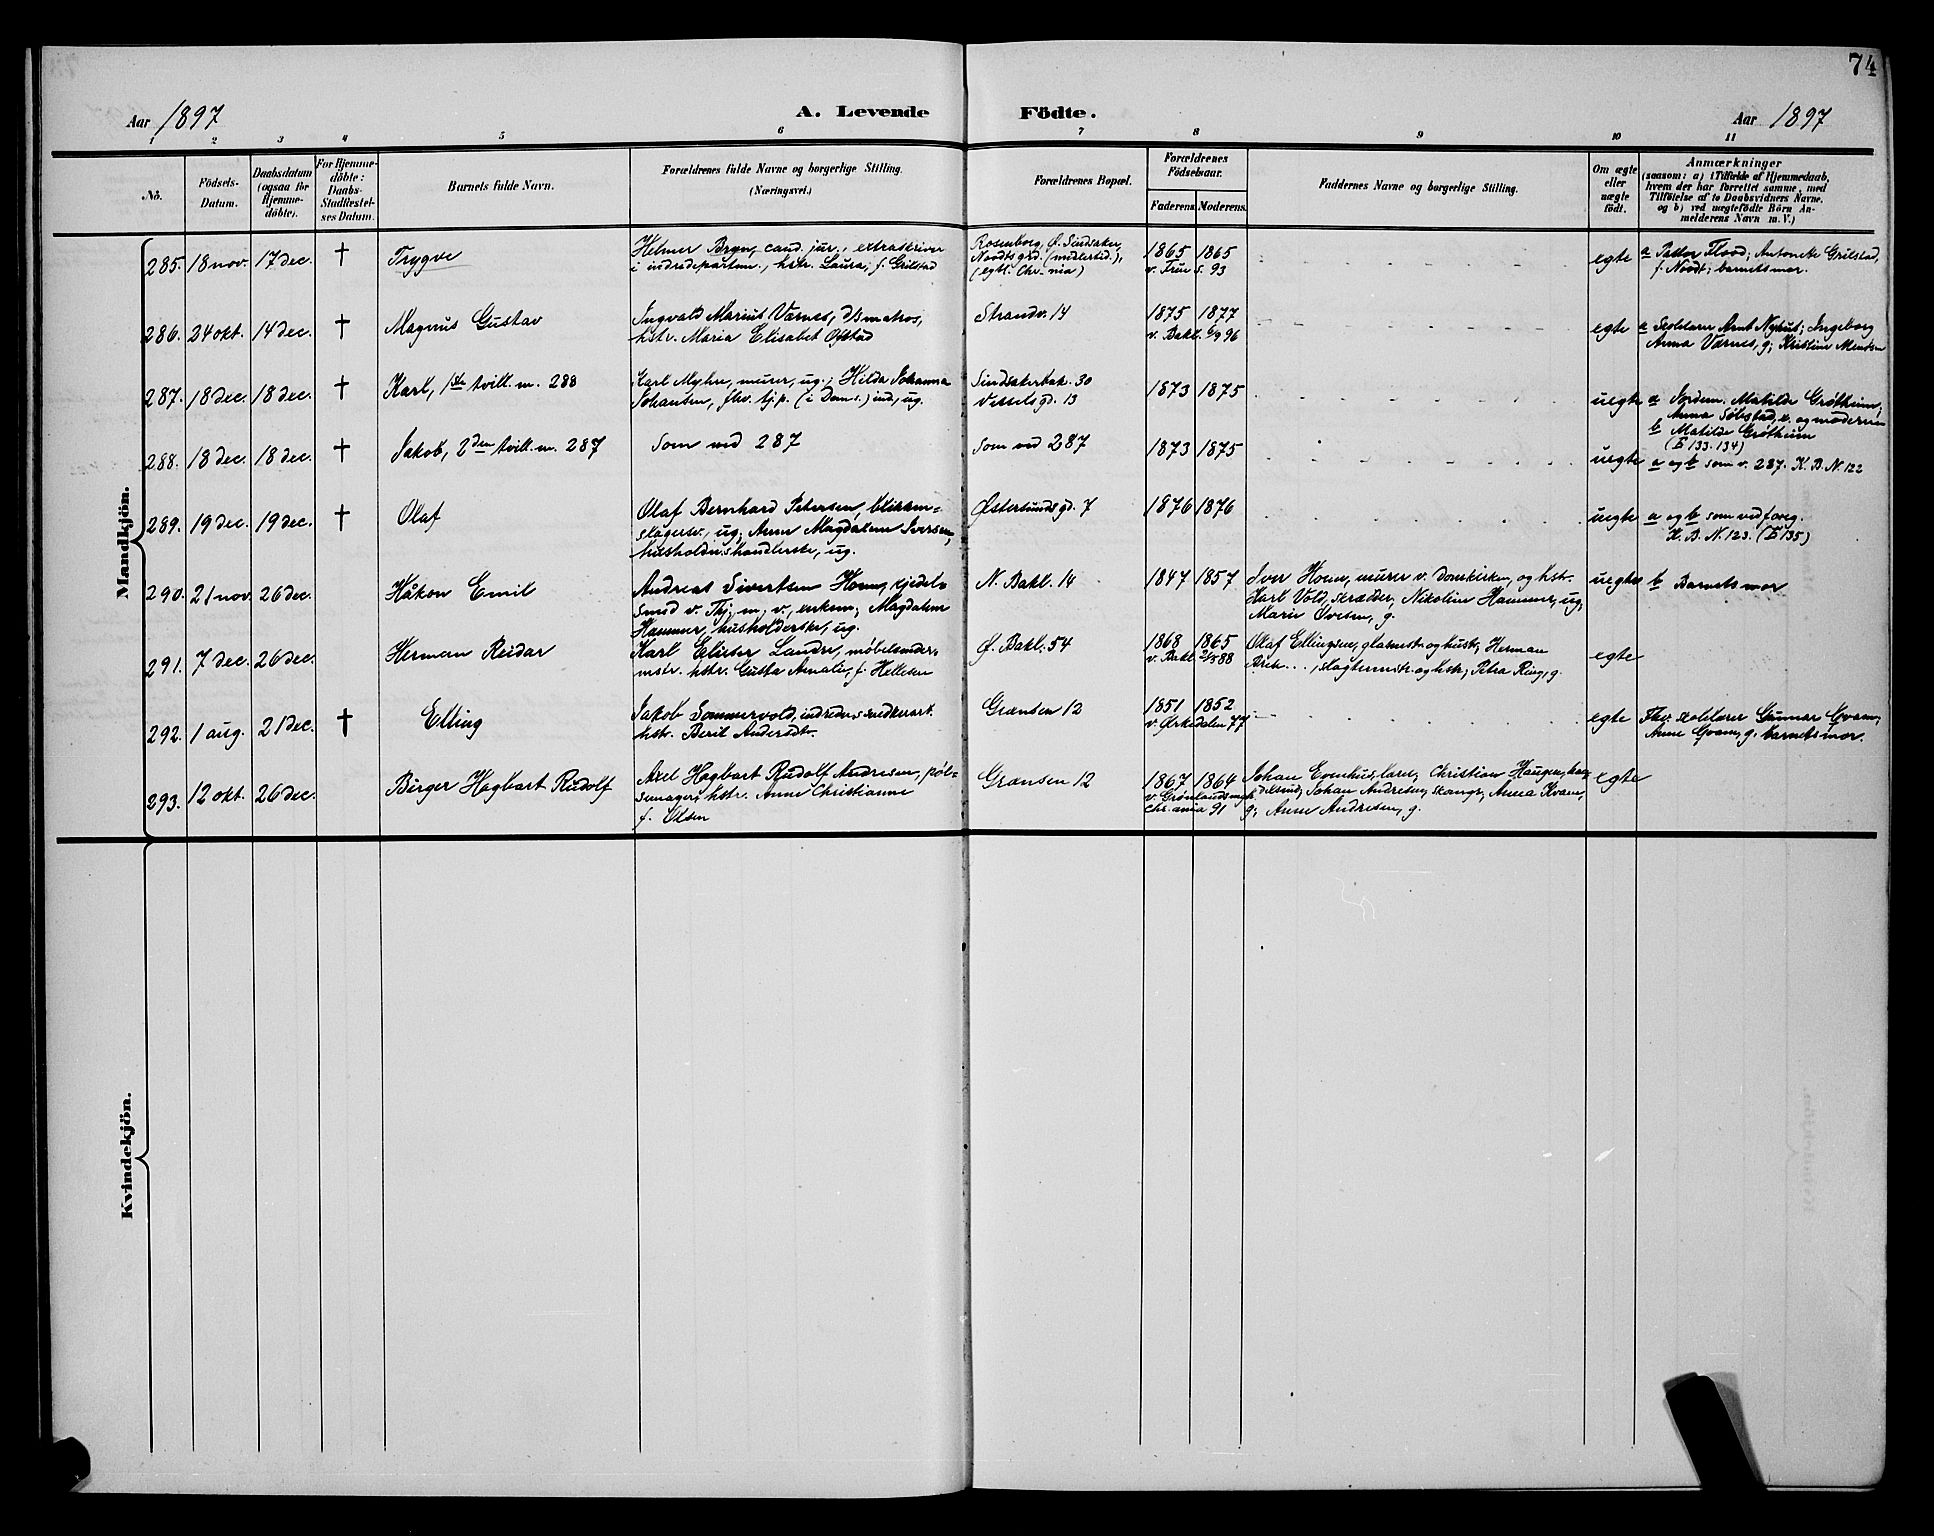 74
Aar 1897
A. Levende Födte.
Aar 1897
1 2 3 4 5 6 7 8 9 10 11
No.
Födsels-Datum.
Daabsdatum (ogsaa for Hjemme-döbte).
For Hjemme-döbte: Daabs-Stadfæstel-ses Datum.
Barnets fulde Navn.
Forældrenes fulde Navne og borgerlige Stilling.
(Næringsvei.)
Forældrenes Bopæl.
Forældrenes Födselsaar.
Faderens. Moderens.
Faddernes Navne og borgerlige Stilling.
Om ægte eller uægte födt.
Anmærkninger
(saasom: a) i Tilfælde af Hjemmedaab,
hvem der har forrettet samme, med
Tilföielse af to Daabsvidners Navne,
og b) ved uægtefödte Börn An-
melderens Navn m. V.)
Mandkjön.
285. 18 nov. 17 dec. † Trygve
Helmer Bryn, cand. jur., extraskriver
i indredepartem., hstr. Laura, f. Grilstad
Rosenborg, Ø. Sindsaker,
Noodtsgrd. (midlertid.),
(egtl. Chr-nia)
1865 1865
v. Frue s. 93
egte
a Pastor Flood; Antonette Grilstad,
f. Noodt; barnets mor.
286. 24 okt. 14 dec. † Magnus Gustav
Ingvald Marius Værnes, DSmatros,
hstr. Maria Elisabet Ofstad
Strandv. 14
1875 1877
v. Bakl. 6/9 96
egte
a Skolelærer Arnt Nyhus; Ingeborg
Anna Værnes, g; Kristine
287. 18 dec. 18 dec. † Karl, 1ste tvill. m. 288
Karl Myhre, murer, ug.; Hilda Johanna
Johansen, fhv. tj.p. (i Dom s.) ind, ug.
Sindsakerbak. 30
Vesselsgd. 13
1873 1875
uegte
a Jordem. Matilde Grøtheim,
Anna Sølsted, e. og moderen
b Matilde Grøtheim
(E 133. 134)
288. 18 dec. 18 dec. † Jakob, 2den tvill. m. 287
Som ved 287
Som ved 287
1873 1875
uegte
a og b som v. 287. K. B. N. 122
289. 19 dec. 19 dec. † Olaf
Olaf Bernhard Petersen, blikken-
slagersv., ug; Anne Magdalena Iversen,
husholdn.shandlerske, ug.
Østerlundsgd. 7
1876 1876
uegte
a og b som ved foreg.
K. B. N. 123. (E 135)
290. 21 nov. 26 dec. Håkon Emil
Andreas Sivertsen Hoem, kjedel-
smed v. Thj. m. v., enkem; Magdalena
Hammer, husholderske, ug.
N. Bakl. 14
1847 1857
Iver Hoem, murer v. Domkirken, og hst.
Karl Vold, skrædder, Nikoline Hammer, ug,
Marie Ovesen, g.
uegte
b Barnets mor
291. 7 dec. 26 dec. Herman Reidar
Karl Elieser Landrø, møbelsnedker-
mstr. hstr. Gusta Amalie, f. Hellesen
Ø. Bakl. 54
1868 1865
v. Bakl. 2/5 88
Olaf Ellingsen, glasmstr. og hust; Herman
Brek..., slagtermstr. og hstr; Petra Ring, g.
egte
292. 1 aug. 21 dec. † Elling
Jakob Sommervold, indredn.snedkerarb.
hstr. Beril Andersdtr.
Grænsen 12
1851 1852
v. Ørkedalen 77
egte
Fhv. skolelærer Gunnar Qvam;
Anne Qvam, g, barnets mor.
293. 12 okt. 26 dec. Birger Hagbart Rudolf
Axel Hagbart Rudolf Andresen, pøl-
semager, hstr. Anne Christianne
f. Olsen
Grænsen 12
1867 1864
v. Grønlands mgh.
Chr.ania 91
Johan Evenhus, lærer; Christian Haugen, han-
delsmd; Johan Andresen, skomgr; Anna Kvam,
g; Anne Andresen, g.
egte
Kvindekjön.